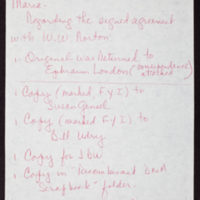 Maxie -
Regarding the signed agreement
with W.W. Norton
1 - Original was Returned to
Ephraim London (correspondence attached)
1 Copy (marked F.Y.I.) to
Susan Gensel
1 Copy (marked F.Y.I.) to
Bill Udry
1 Copy for JDW
1 Copy in "Recombinant DNA
Scrapbook" folder.